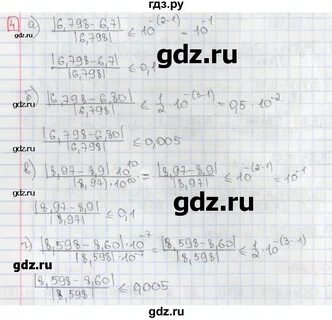 гдз.ру
4 а) |6,798-6,7| / |6,798| ≤ 10^-(2-1) = 10^-1
gdz.ru
|6,798-6,7| / |6,798| ≤ 0,1
б) |6,798-6,80| / |6,798| ≤ 1/2 · 10^-(3-1) = 0,5 · 10^-2
gdz.ru
|6,798-6,80| / |6,798| ≤ 0,005
в) |8,97-8,9| · 10^10 / |8,97| · 10^10 = |8,97-8,9| / |8,97| ≤ 10^-(2-1) = 10^-1
gdz.ru
|8,97-8,9| / |8,97| ≤ 0,1
г) |8,598-8,60| · 10^-7 / |8,598| · 10^-7 = |8,598-8,60| / |8,598| ≤ 1/2 · 10^-(3-1)
gdz.ru
|8,598-8,60| / |8,598| ≤ 0,005
gdz.ru